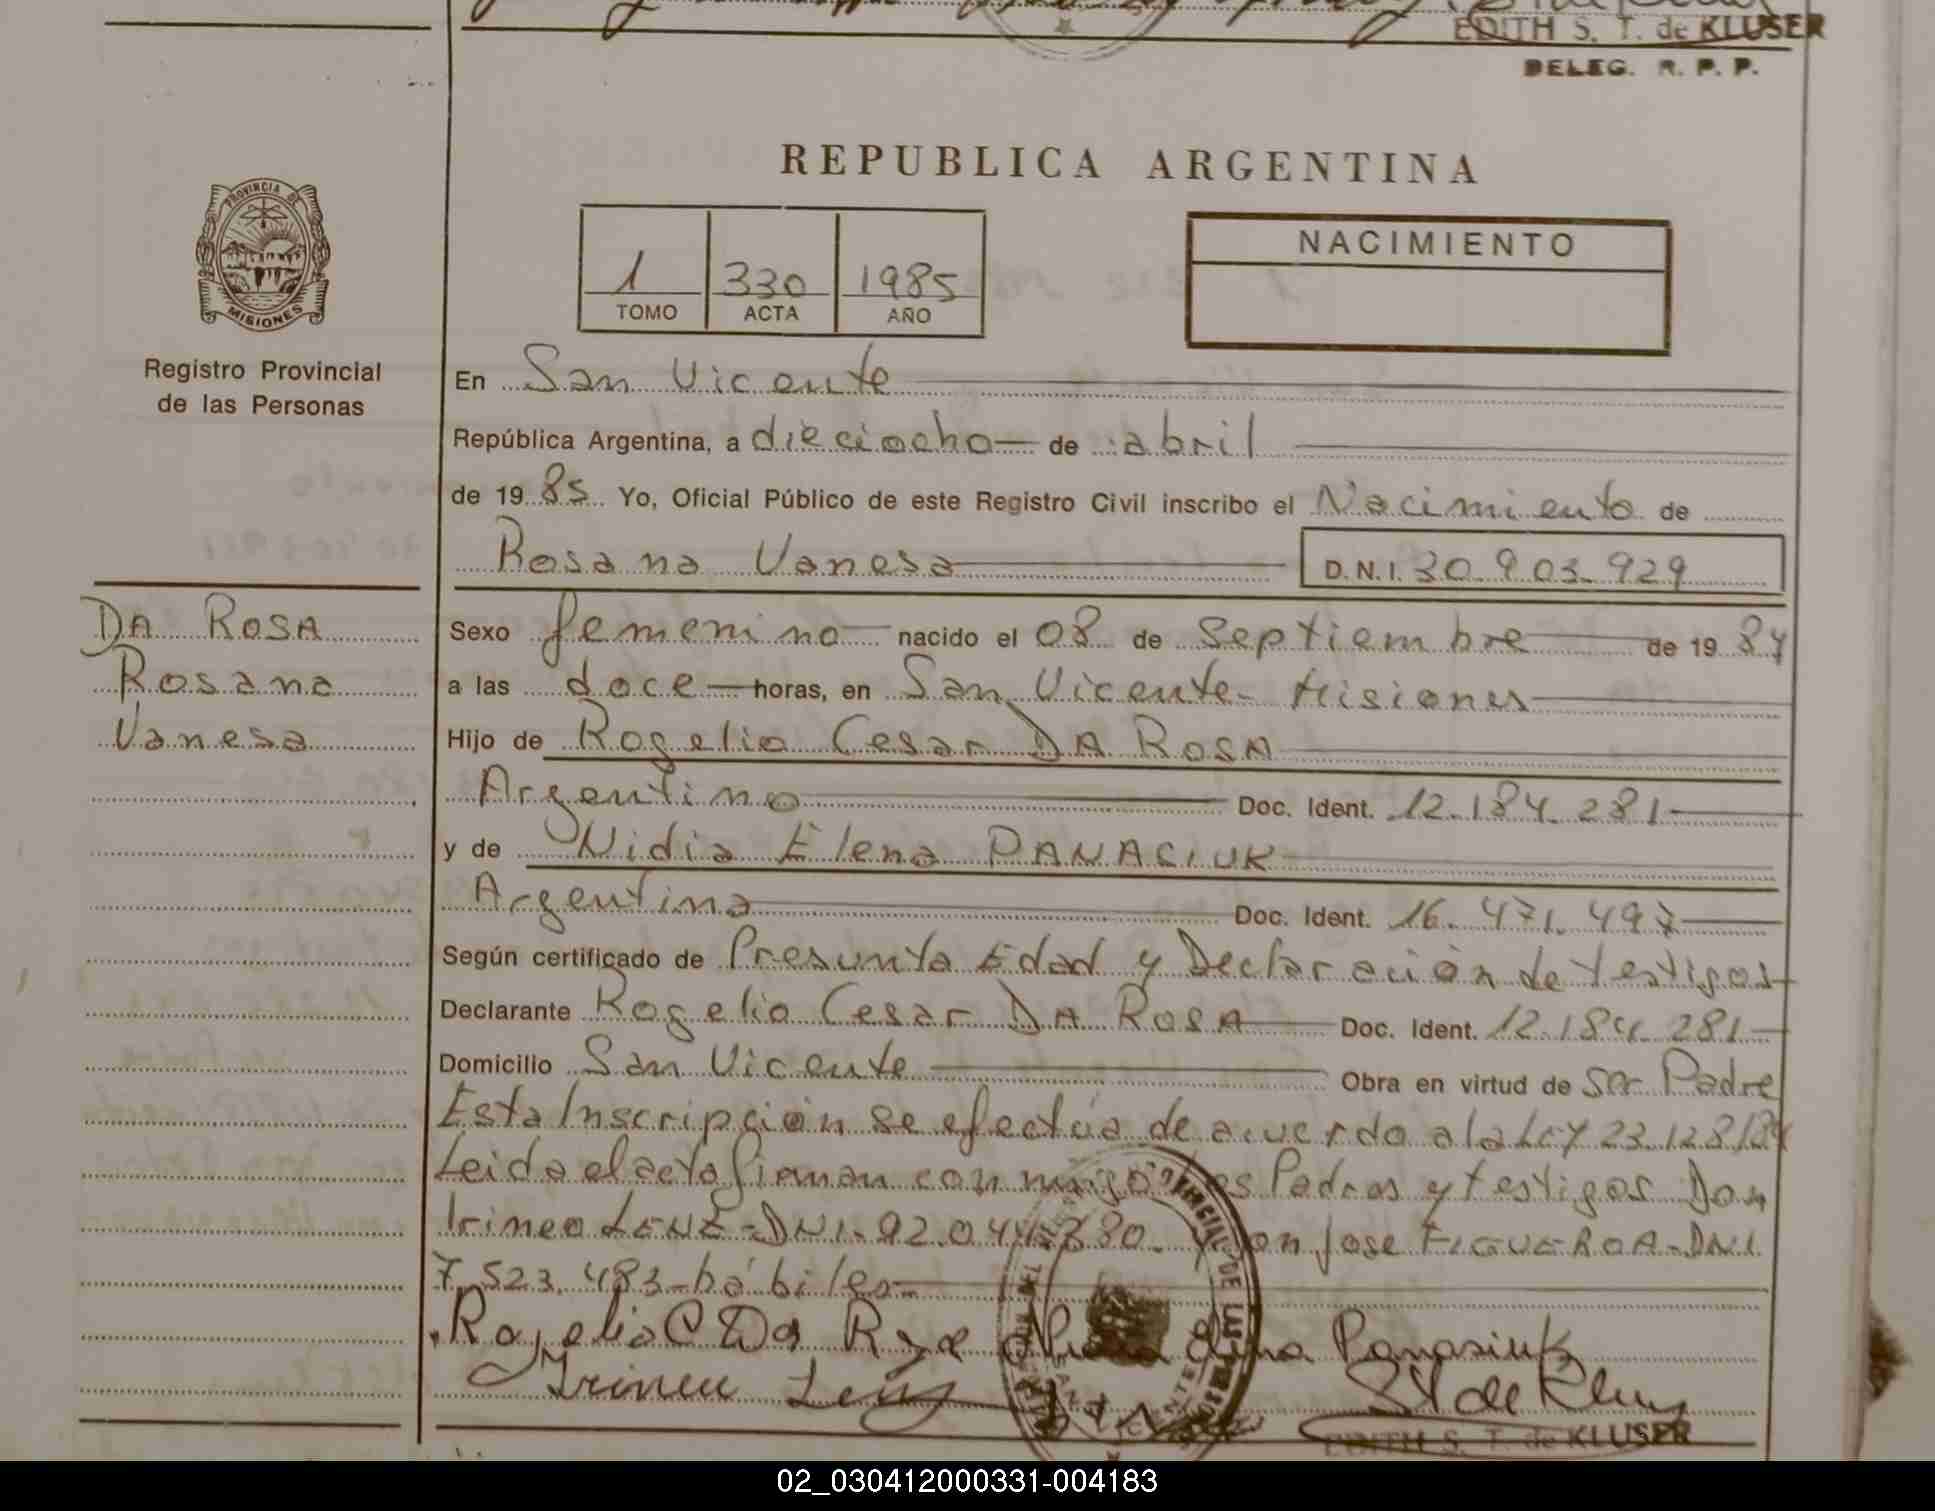 EDITH S. T. de KLUSER
DELEG. R. P. P.
REPUBLICA ARGENTINA
PROVINCIA DE
MISIONES
Registro Provincial
de las Personas
1 330 1985
TOMO ACTA AÑO
NACIMIENTO
En San Vicente
República Argentina, a dieciocho de abril
de 1985 Yo, Oficial Público de este Registro Civil inscribo el Nacimiento de
Rosana Vanesa D.N.I. 30.903.929
DA ROSA
Rosana
Vanesa
Sexo femenino nacido el 08 de septiembre de 1984
a las doce horas, en San Vicente - Misiones
Hijo de Rogelio Cesar DA ROSA
Argentino Doc. Ident. 12.184.281
y de Nidia Elena PANACIUK
Argentina Doc. Ident. 16.471.497
Según certificado de Presunta Edad y Declaración de testigos
Declarante Rogelio Cesar DA ROSA Doc. Ident. 12.184.281
Domicilio San Vicente Obra en virtud de Ser Padre
Esta Inscripción se efectúa de acuerdo a la Ley 23.128/84
Leida el acta firman conmigo los Padres y testigos Don
Irineo LENZ - DNI. 92.044.330. y Don Jose FIGUEROA - DNI.
7.523.483 - hábiles -
Rogelio C Da Roza Elena Panasiuk
Irineu Lenz
EDITH S. T. de KLUSER
02_030412000331-004183